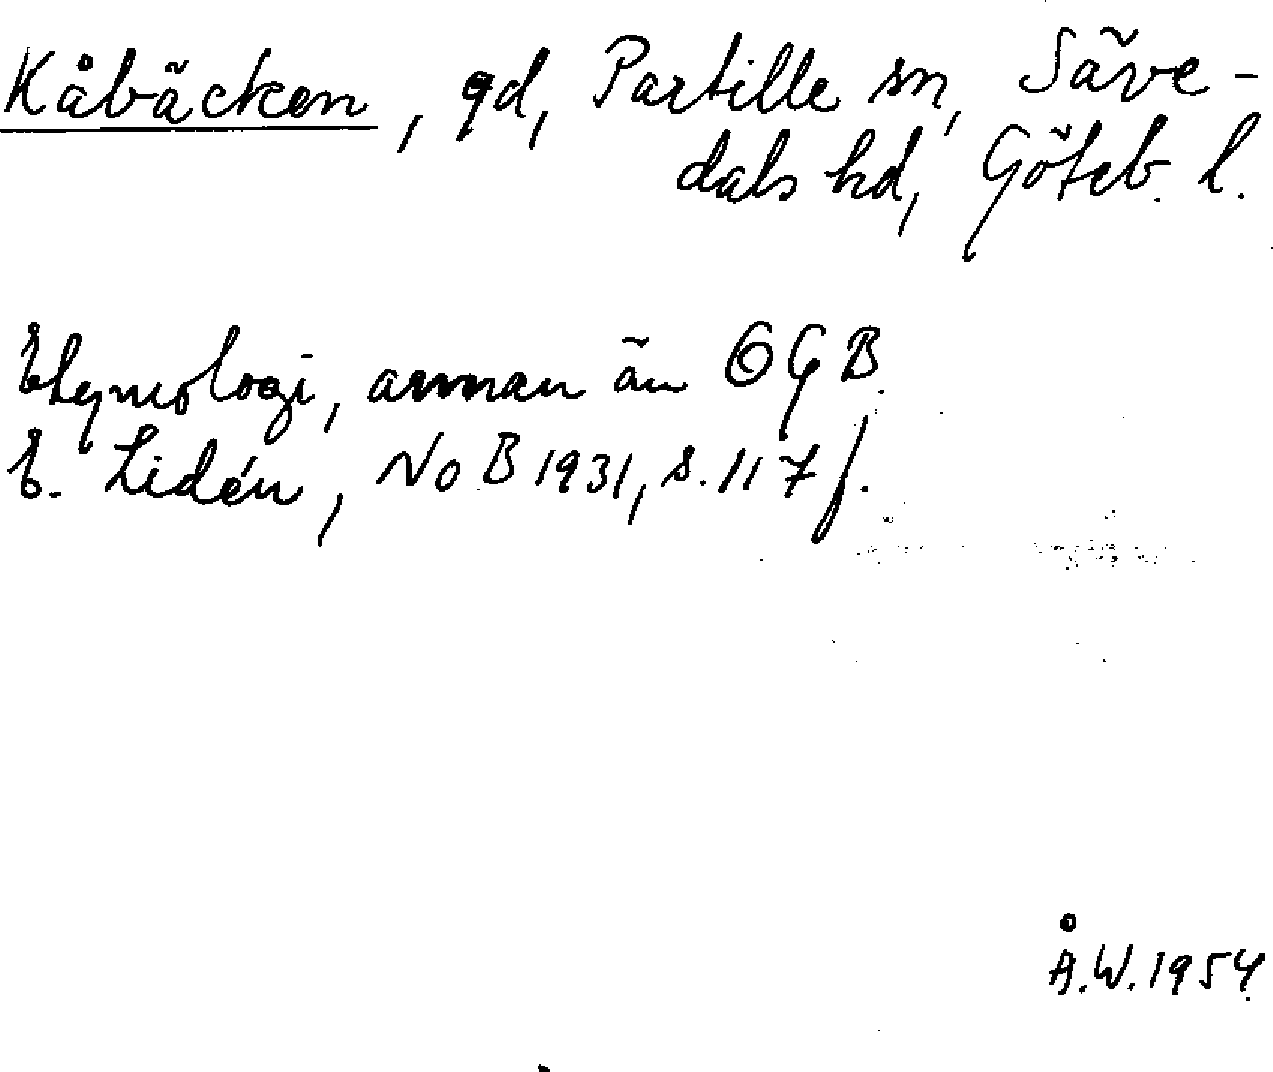 Kåbäcken, gd, Partille sn, Säve-
dals hd, Göteb. l.
Etymologi, annan än OGB.
E. Lidén, NoB 1931, s. 117 f.
Å.W. 1954